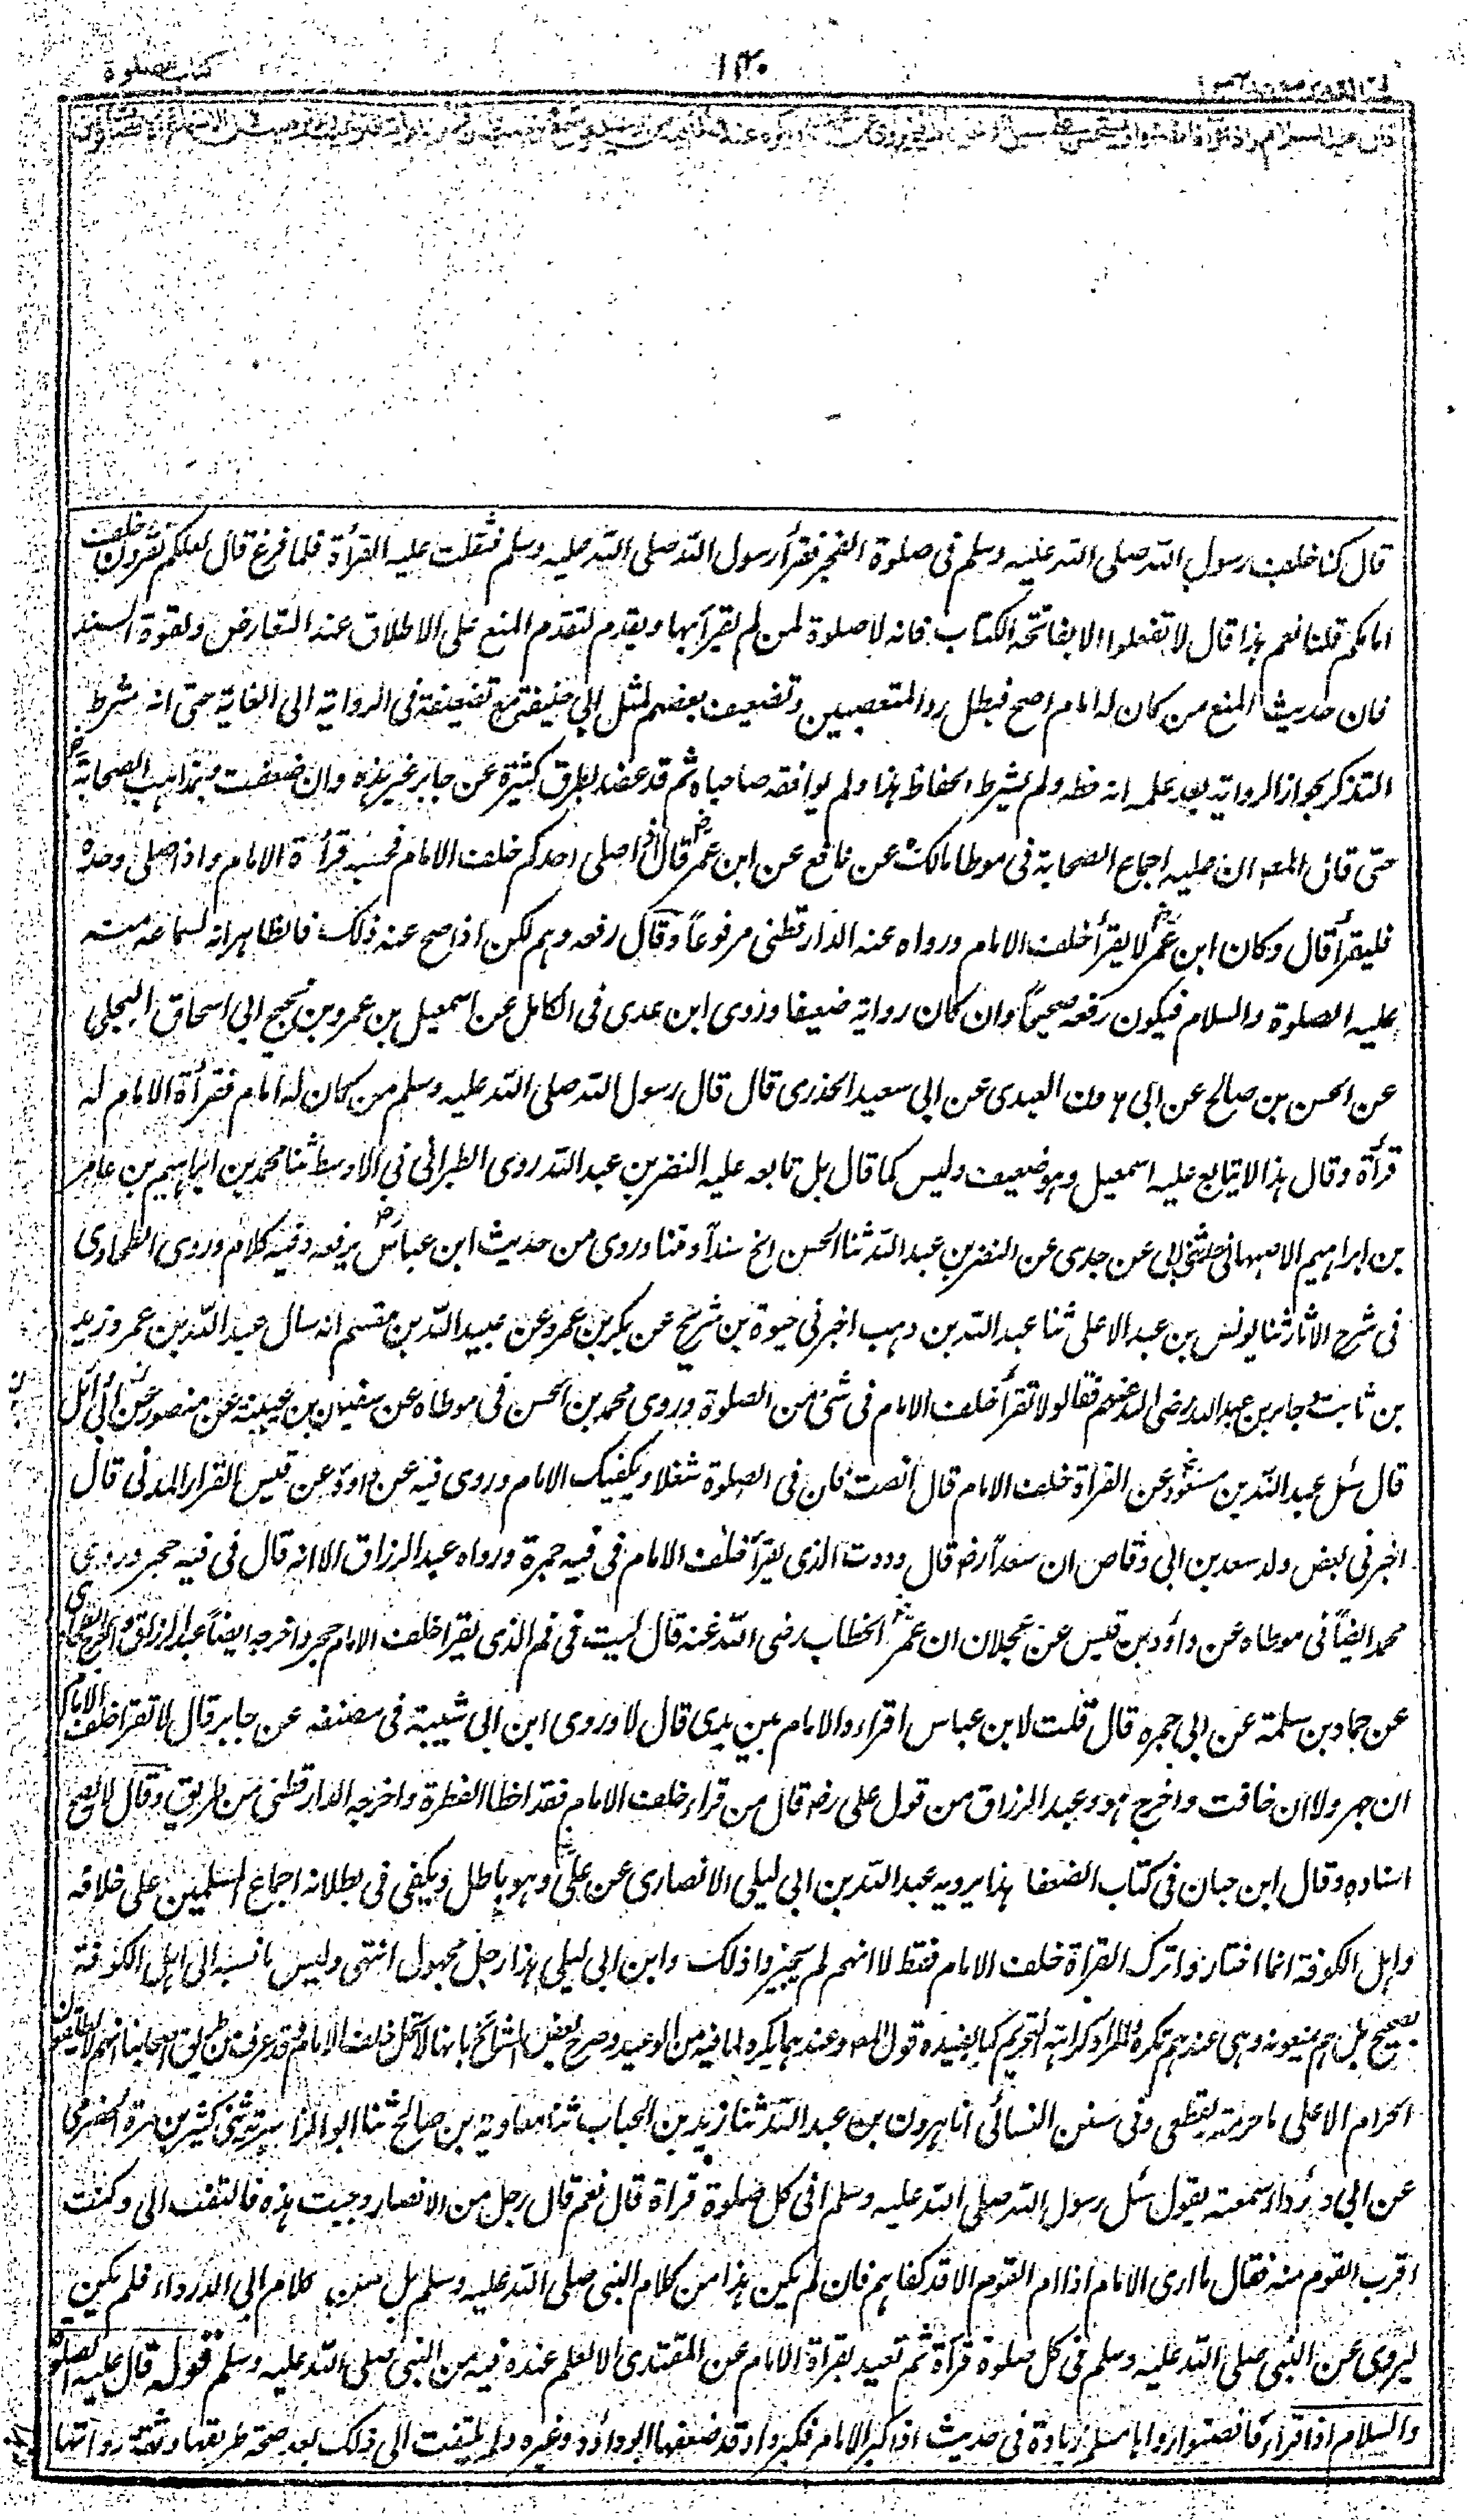 كتاب الصلوة
١٤٠
قال كنا خلف رسول الله صلى الله عليه وسلم فى صلوة الفجر فقرأ رسول الله صلى الله عليه وسلم فثقلت عليه القرأة فلما فرغ قال لعلكم تقرون خلف
امامكم قلنا نعم هذا قال لا تفعلوا الا بفاتحة الكتاب فانه لا صلوة لمن لم يقرأ بها ويقدم لتقدم المنع على الاطلاق عند التعارض ولقوة السند
فان حديث المنع من كان له امام اصح فبطل رد المتعصبين وتضعيف بعضهم لمثل ابى حنيفة مع تضييقه فى الرواية الى الغاية حتى انه شرط
التذكر لجواز الرواية بعد علمه انه خطه ولم يشرط الحفاظ هذا ولم يوافقه صاحباه ثم قد عضد بطرق كثيرة عن جابر غير هذه وان ضعفت وبمذاهب الصحابة رض
حتى قال المصـ ان عليه اجماع الصحابة فى موطا مالك عن نافع عن ابن عمر رض قال اذا صلى احدكم خلف الامام فحسبه قرأة الامام واذا صلى وحده
فليقرأ قال وكان ابن عمر رض لا يقرأ خلف الامام ورواه عنه الدارقطنى مرفوعاً وقال رفعه وهم لكن اذا صح عنه ذلك فالظاهر انه لسماعه منه
عليه الصلوة والسلام فيكون رفعه صحيحاً وان كان رواية ضعيفا وروى ابن عدى فى الكامل عن اسمعيل بن عمرو بن نجيح ابى اسحاق البجلى
عن الحسن بن صالح عن ابى هرون العبدى عن ابى سعيد الخدرى قال قال رسول الله صلى الله عليه وسلم من كان له امام فقرأة الامام له
قرأة وقال هذا لا يتابع عليه اسمعيل وهو ضعيف وليس كما قال بل تابعه عليه النضر بن عبد الله روى الطبرانى فى الاوسط ثنا محمد بن ابراهيم بن عامر
بن ابراهيم الاصبهانى حدثنى ابى عن جدى عن النضر بن عبد الله ثنا الحسن الخ سنداً ومتنا وروى من حديث ابن عباس رض يرفعه وفيه كلام وروى الطحاوى
فى شرح الاثار ثنا يونس بن عبد الاعلى ثنا عبد الله بن وهب اخبرنى حيوة بن شريح عن بكر بن عمرو عن عبيد الله بن مقسم انه سال عبد الله بن عمر وزيد
بن ثابت وجابر بن عبد الله رضى الله عنهم فقالوا لا تقرأ خلف الامام فى شئ من الصلوة وروى محمد بن الحسن فى موطاه عن سفين بن عيينة عن منصور عن ابى وائل
قال سئل عبد الله بن مسعود رض عن القرأة خلف الامام قال انصت فان فى الصلوة شغلا ويكفيك الامام وروى فيه عن داود عن قيس الفرار المدنى قال
اخبرنى بعض ولد سعد بن ابى وقاص ان سعداً رض قال وددت الذى يقرأ خلف الامام فى فيه جمرة ورواه عبد الرزاق الا انه قال فى فيه حجر وروى
محمد ايضاً فى موطاه عن داؤد بن قيس عن عجلان ان عمر بن الخطاب رضى الله عنه قال ليت فى فم الذى يقرا خلف الامام حجر واخرجه ايضاً عبد الرزاق واخرج الطحاوى
عن حماد بن سلمة عن ابى جمره قال قلت لابن عباس اقراء والامام بين يدى قال لا وروى ابن ابى شيبة فى مصنفه عن جابر قال لا تقرا خلف الامام
ان جهر ولا ان خافت واخرج هو وعبد الرزاق من قول على رض قال من قراء خلف الامام فقد اخطا الفطرة واخرجه الدارقطنى من طريق وقال لا يصح
اسناده وقال ابن حبان فى كتاب الضعفا هذا يرويه عبد الله بن ابى ليلى الانصارى عن على رض وهو باطل ويكفى فى بطلانه اجماع المسلمين على خلافه
واهل الكوفة انما اختاروا ترك القرأة خلف الامام فقط لا انهم لم يجيزوا ذلك وابن ابى ليلى هذا رجل مجهول انتهى وليس ما نسبه الى اهل الكوفة
بصحيح بل هم يمنعونه وهى عندهم تكره والمراد كراهة التحريم كما يفيده قول المصـ وعندهما يكره لما فيه من الوعيد وصرح بعض المشائخ بانها لا تحل خلف الامام وقد عرف من طريق اصحابنا انهم لا يطلقون
الحرام الا على ما حرمته بقطعى وفى سنن النسائى انا هرون بن عبد الله ثنا زيد بن الحباب ثنا معاوية بن صالح ثنا ابو الزاهرية ثنى كثير بن مرة الحضرمى
عن ابى درداء سمعته يقول سئل رسول الله صلى الله عليه وسلم افى كل صلوة قراة قال نعم قال رجل من الانصار وجبت هذه فالتفت الى وكنت
اقرب القوم منه فقال ما ارى الامام اذا ام القوم الا قد كفاهم فان لم يكن هذا من كلام النبى صلى الله عليه وسلم بل من كلام ابى الدرداء فلم يكن
ليروى عن النبى صلى الله عليه وسلم فى كل صلوة قرأة ثم تعيد بقراة الامام عن المقتدى الا لعلم عنده فيه من النبى صلى الله عليه وسلم قوله قال عليه الصلوة
والسلام اذا قراء فانصتوا رواها مسلم زيادة فى حديث اذا كبر الامام فكبروا وقد ضعفها ابو داؤد وغيره ولم يلتفت الى ذلك بعد صحة طريقها وثقة رواتها